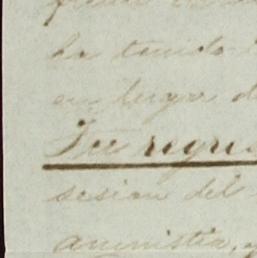 ha tenido
en lugar d
Su regre
sesion del
amnistia,